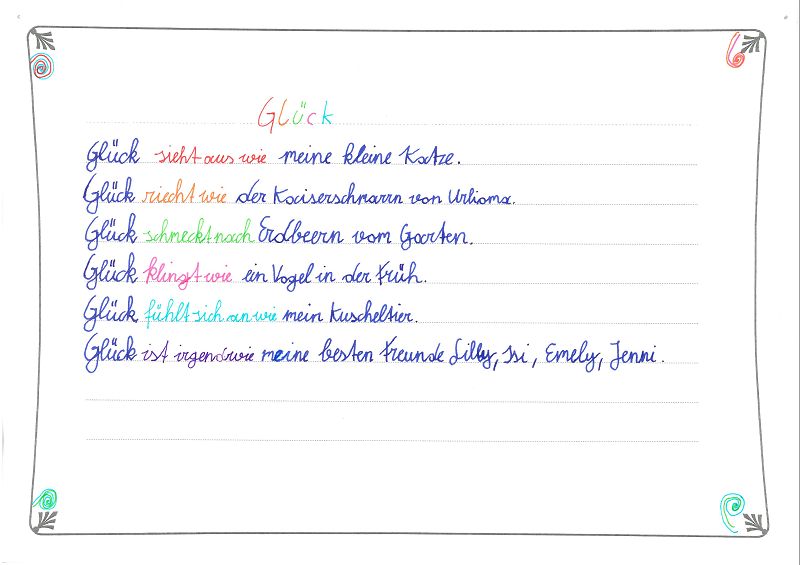 Glück
Glück sieht aus wie meine kleine Katze.
Glück riecht wie der Kaiserschmarrn von Urlioma.
Glück schmeckt nach Erdbeern vom Garten.
Glück klingt wie ein Vogel in der Früh.
Glück fühlt sich an wie mein Kuscheltier.
Glück ist irgendwie meine besten Freunde Lilly, Isi, Emely, Jenni.